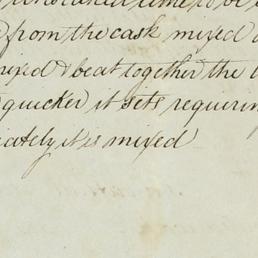 time to be
from the cask mixed
mixed & beat together the
quicker it sets requirin
iately it is mixed